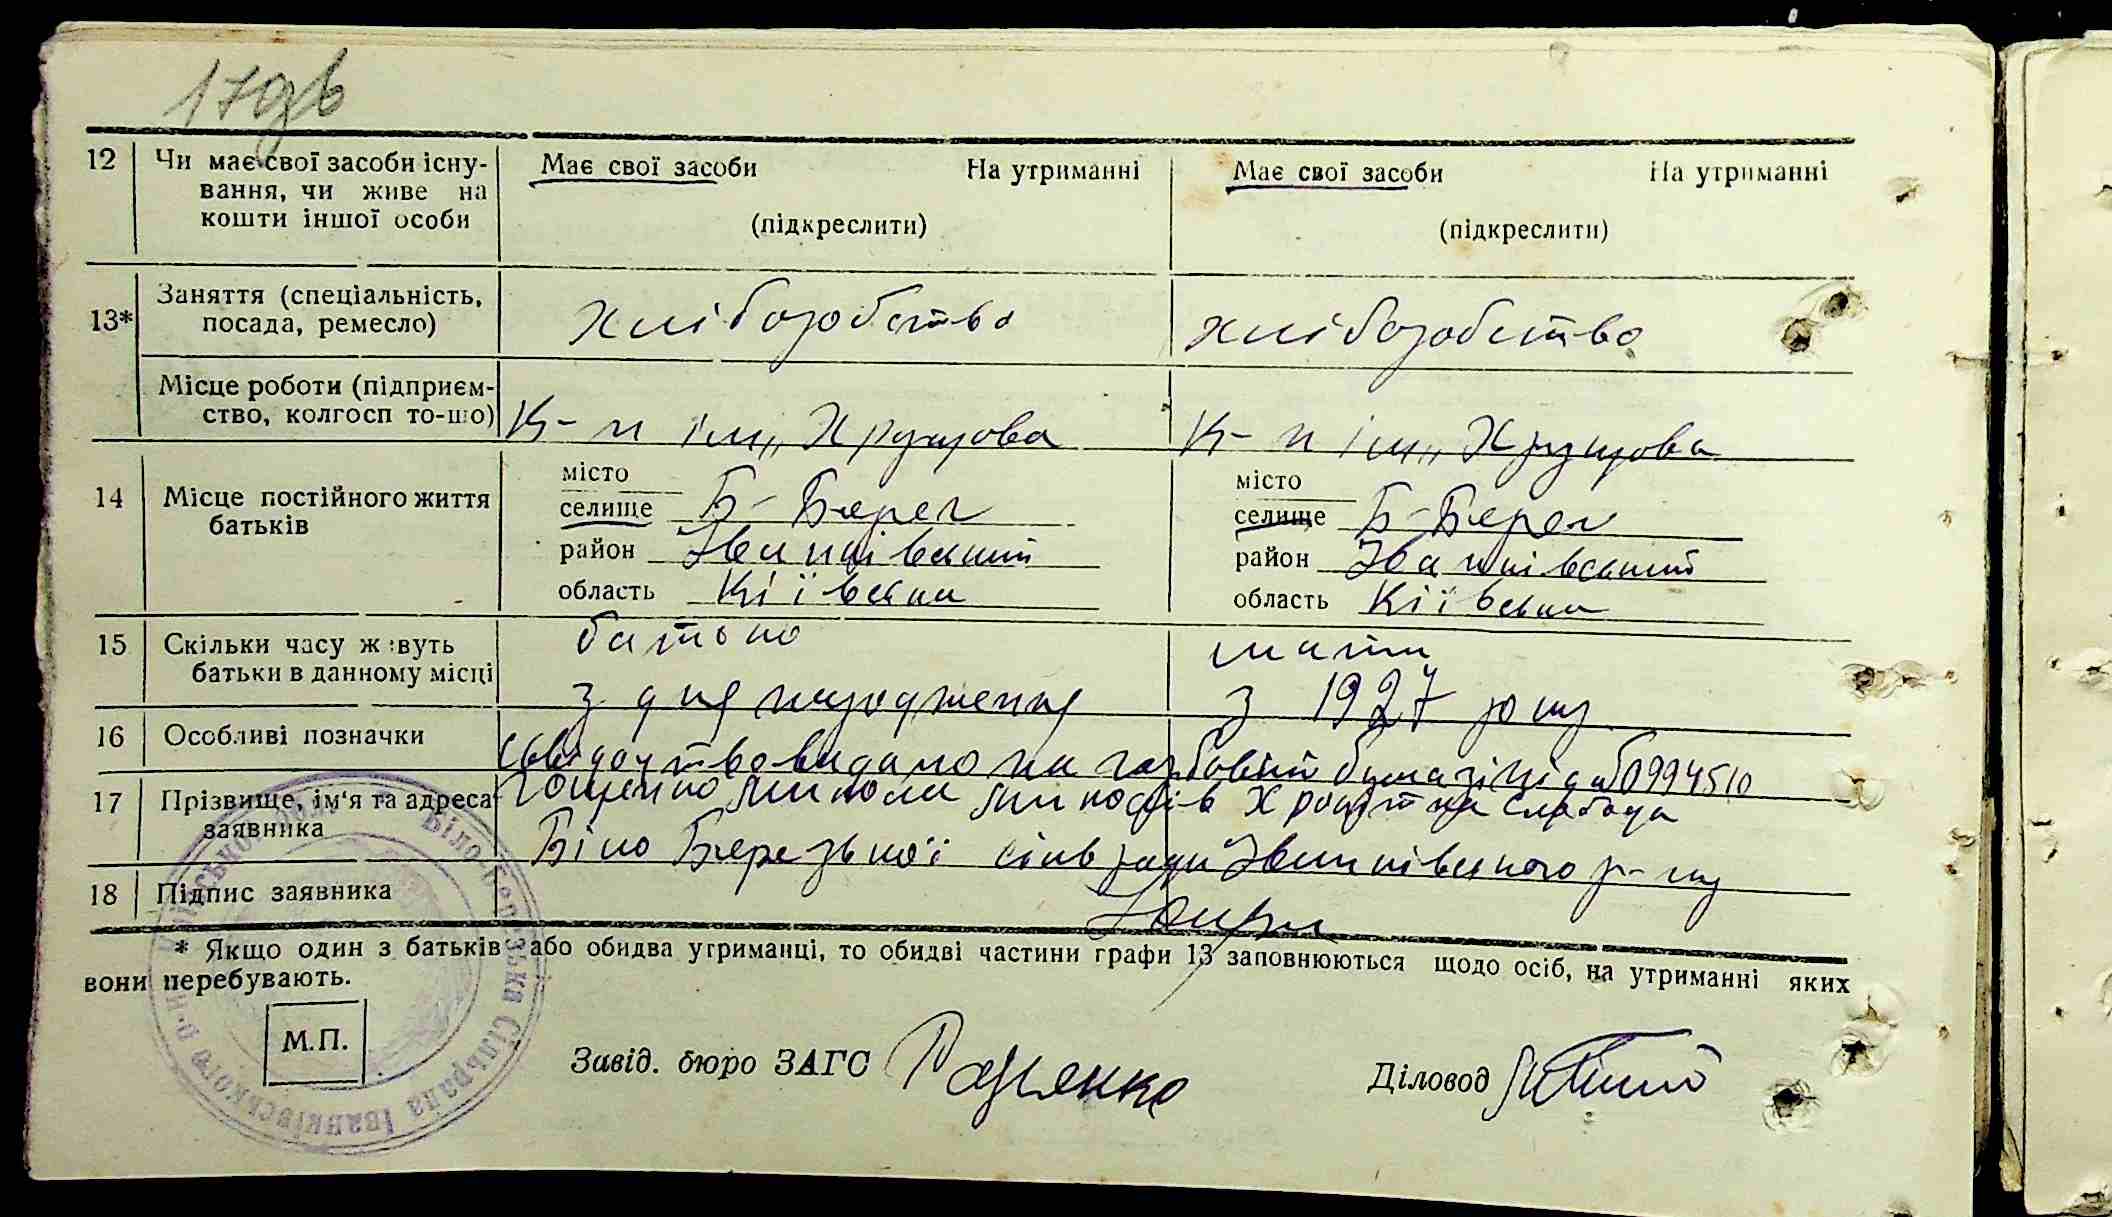 17зв
12 Чи має свої засоби існу- Має свої засоби На утриманні Має свої засоби На утриманні
вання, чи живе на
кошти іншої особи (підкреслити) (підкреслити)
13* Заняття (спеціальність, хліборобство хліборобство
посада, ремесло)
Місце роботи (підприєм-
ство, колгосп то-що) К-п ім. Хрущова К-п ім. Хрущова
місто місто
14 Місце постійного життя селище Б-Берег селище Б-Берег
батьків район Іванківський район Іванківський
область Кіївська область Кіївська
15 Скільки часу живуть батько мати
батьки в данному місці з дня народження з 1927 року
16 Особливі позначки Свідоцтво видано на гербовій бумазі під №0994510
17 Прізвище, ім'я та адреса Миколи Слабода
заявника Біло Березької сільради Іванківського р-ну
18 Підпис заявника
* Якщо один з батьків або обидва утриманці, то обидві частини графи 13 заповнюються щодо осіб, на утриманні яких
вони перебувають.
М.П. Завід. бюро ЗАГС Діловод
Біло-Березька Сільрада Іванківського р-н